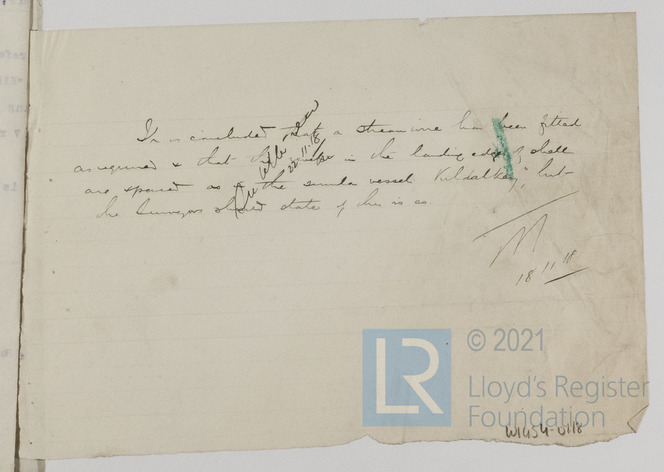 It is concluded that a streamwire has been fitted
as required & that the in the landing edges of shell
are spaced as in the similar vessel "Kildalkey", but
the Surveyors should state if this is so.
See letter
22.11.18
18 11 18
LR
© 2021
Lloyd's Register
Foundation
W1454-0118